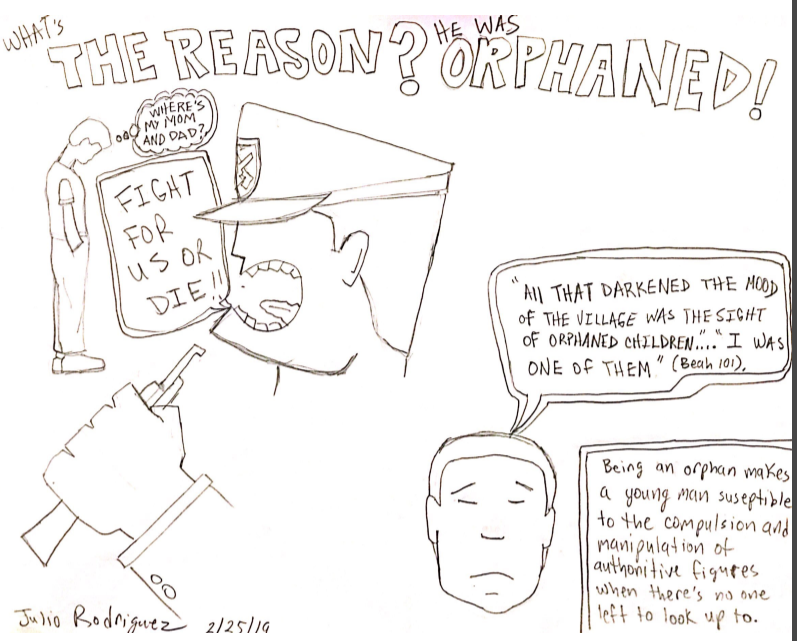 WHAT'S
THE REASON?
HE WAS
ORPHANED!
WHERE'S
MY MOM
AND DAD?
FIGHT
FOR
US OR
DIE!!
"All THAT DARKENED THE MOOD
OF THE VILLAGE WAS THE SIGHT
OF ORPHANED CHILDREN"..."I WAS
ONE OF THEM" (Beah 101).
Being an orphan makes
a young man suseptible
to the compulsion and
manipulation of
authoritive figures
when there's no one
left to look up to.
Julio Rodriguez 2/25/19